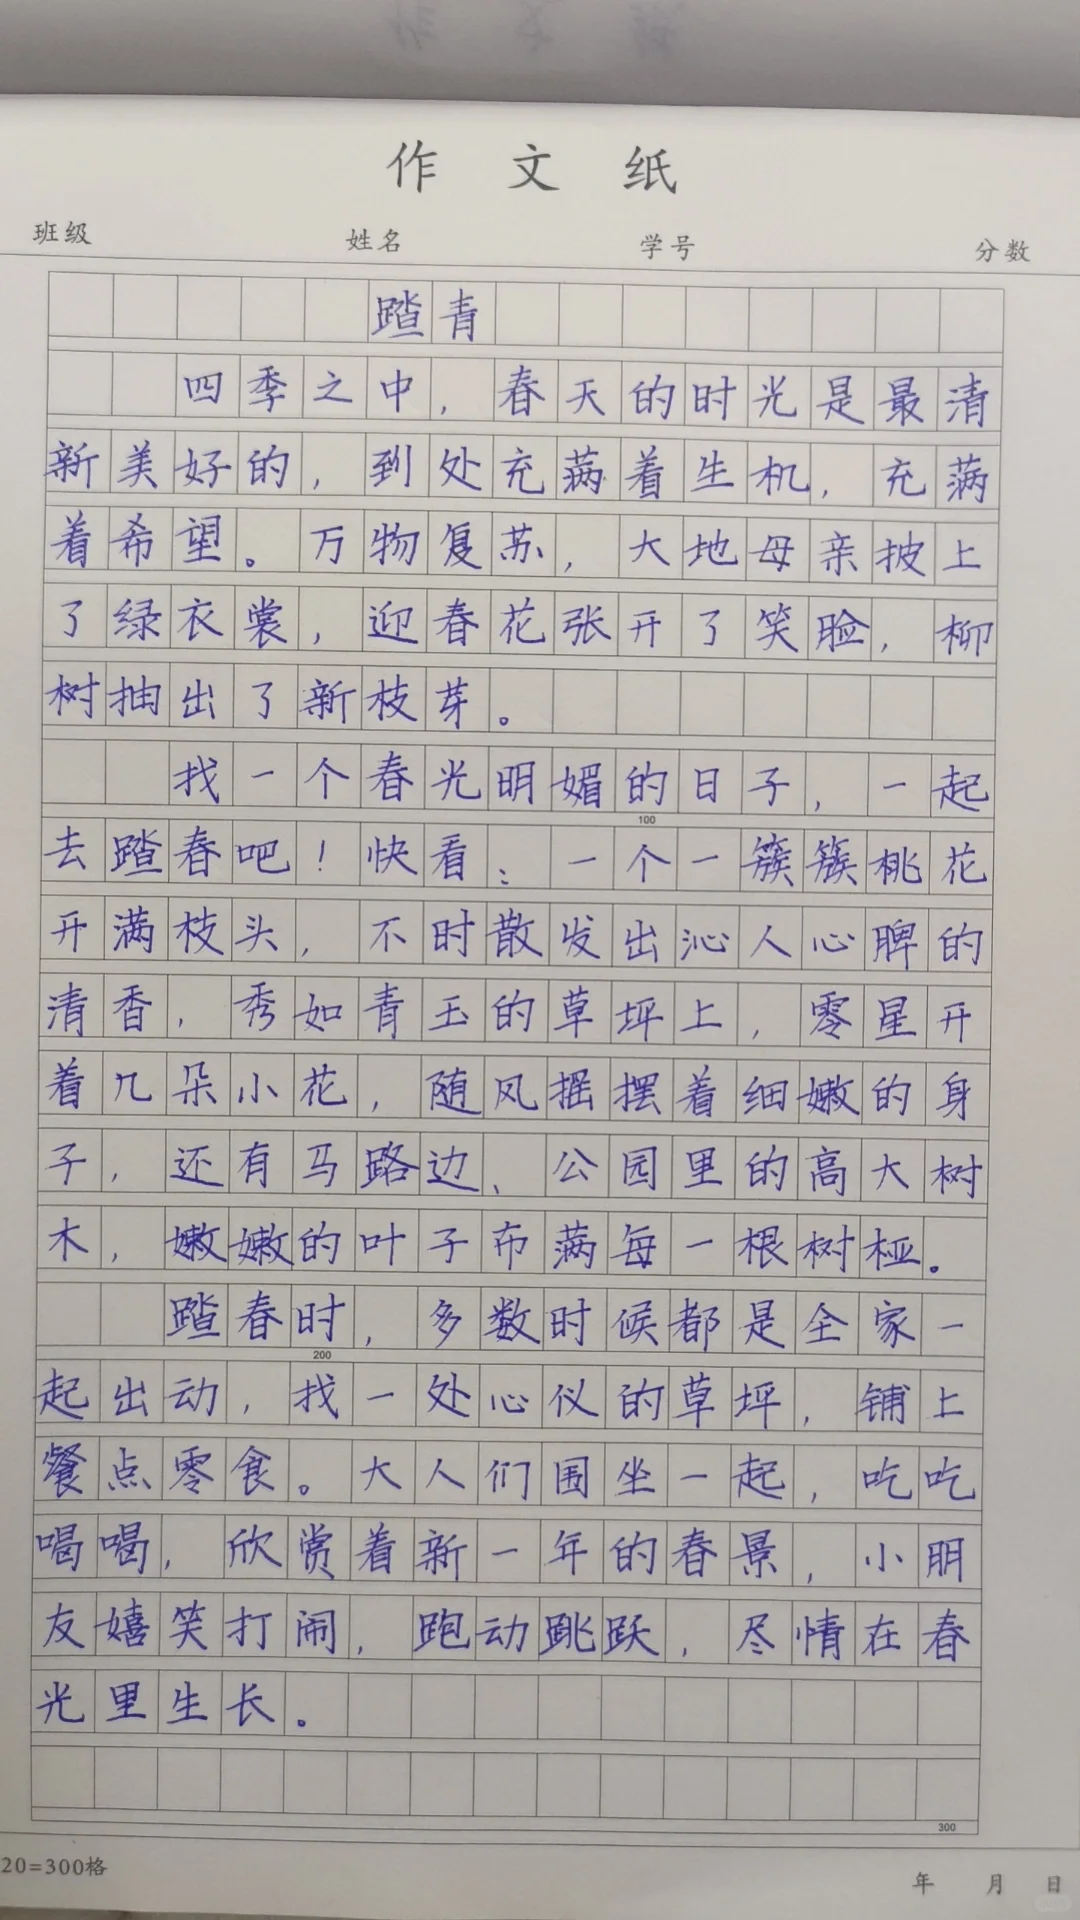 作文纸
班级 姓名 学号 分数
踏青
四季之中，春天的时光是最清
新美好的，到处充满着生机，充满
着希望。万物复苏，大地母亲披上
了绿衣裳，迎春花张开了笑脸，柳
树抽出了新枝芽。
找一个春光明媚的日子，一起
100
去踏春吧！快看：一个一簇簇桃花
开满枝头，不时散发出沁人心脾的
清香，秀如青玉的草坪上，零星开
着几朵小花，随风摇摆着细嫩的身
子，还有马路边、公园里的高大树
木，嫩嫩的叶子布满每一根树桠。
踏春时，多数时候都是全家一
200
起出动，找一处心仪的草坪，铺上
餐点零食。大人们围坐一起，吃吃
喝喝，欣赏着新一年的春景，小朋
友嬉笑打闹，跑动跳跃，尽情在春
光里生长。
300
20=300格
年 月 日